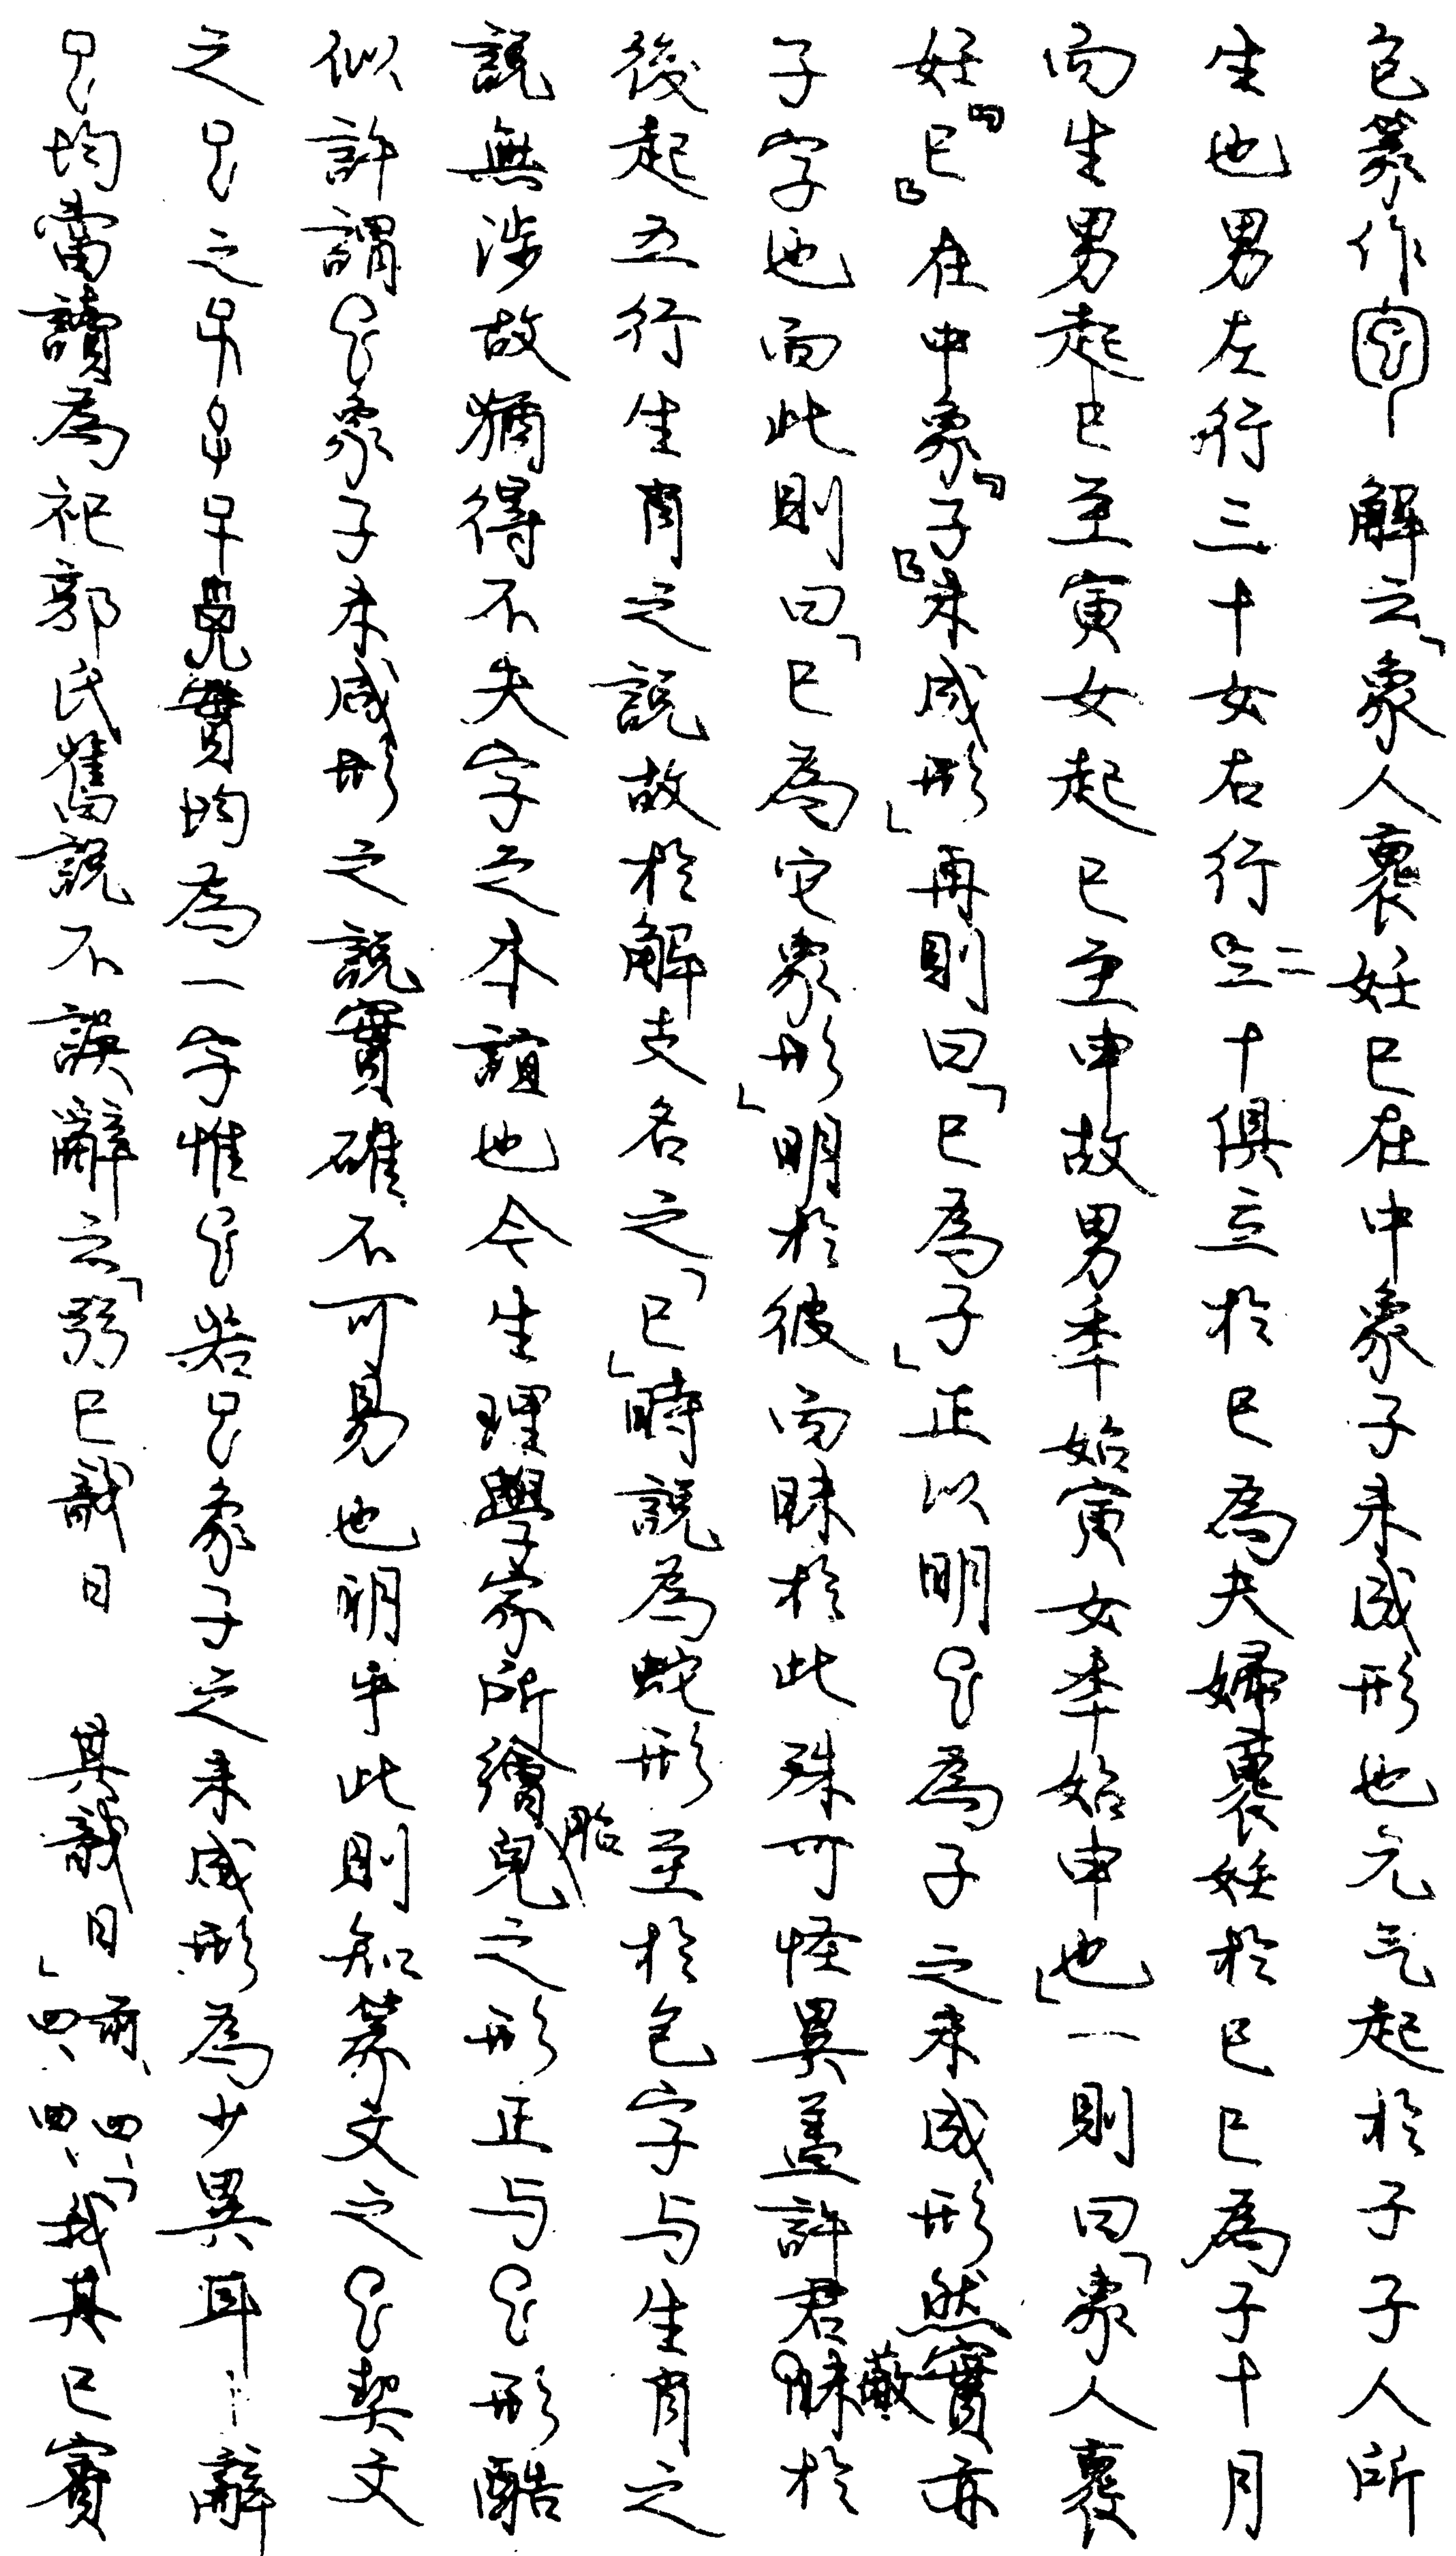 包篆作解云「象人褢妊巳在中象子未成形也元气起於子子人所
生也男左行三十女右行二十俱立於巳為夫婦褢妊於巳巳為子十月
而生男起巳至寅女起巳至申故男秊始寅女秊始申也」一則曰「象人褢
妊『巳』在中象『子』未成形」再則曰「巳為子」正以明為子之未成形然實亦
子字也而此則曰「巳為它象形」明於彼而昧於此殊可怪異蓋許君蔽於
後起五行生肖之說故於解支名之「巳」時說為蛇形至於包字与生肖之
說無涉故猶得不失字之本誼也今生理學家所繪胎兒之形正与形酷
似許謂象子未成形之說實確不可易也明乎此則知篆文之契文
之之均為一字惟若象子之未成形為少異耳辭
均當讀為祀郭氏舊說不誤辭云「巳戠日 其戠日」前、四、四、四、「我其巳賓